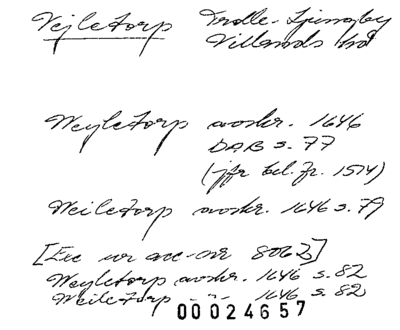 Vejletorp Trolle-Ljungby
Villands hd
Weyletorp avskr. 1646
DAB s. 77
(jfr bel. fr. 1514)
Weiletorp avskr. 1646 s. 79
[Exc ur acc-nr 8062]
Weyletorp avskr. 1646 s. 82
Weiletorp -"- 1646 s. 82
00024657